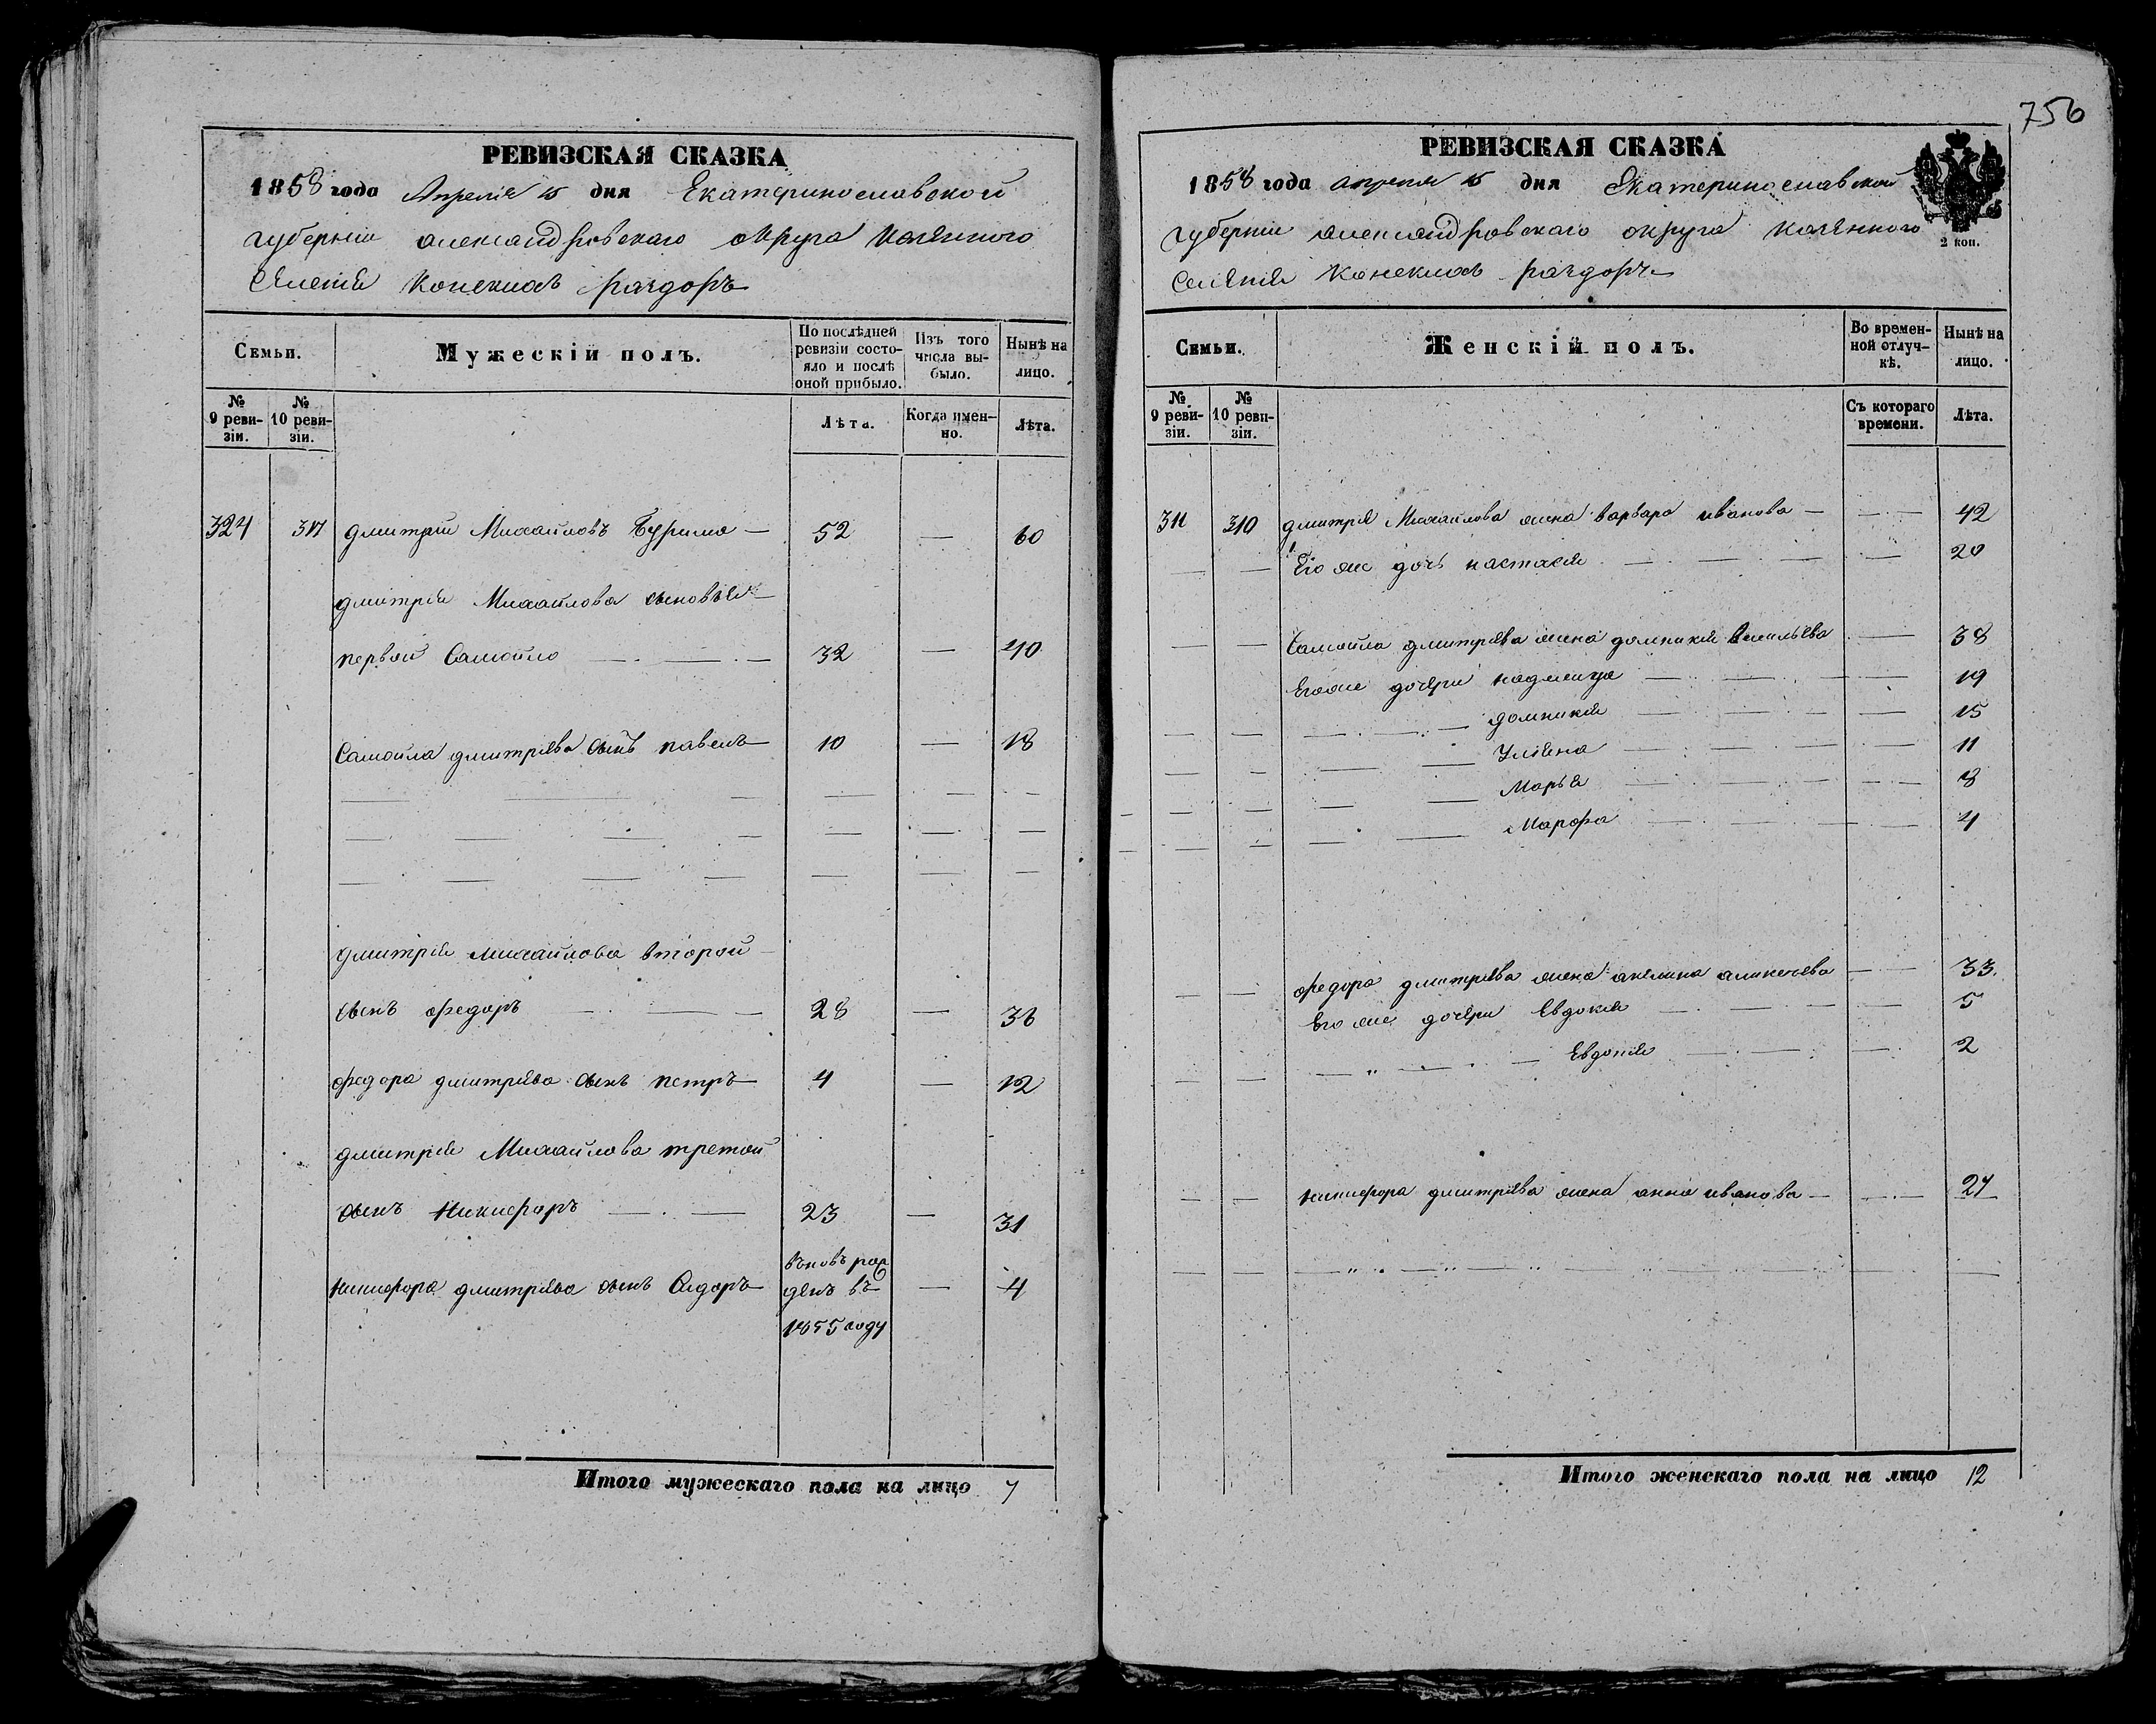 756
РЕВИЗСКАЯ СКАЗКА
1858 года Апреля 15 дня Екатеринославской
губернии александровскаго округа казенного
селения Конекихъ раздоръ
Семьи.
Мужескій полъ.
По послѣдней ревизіи состояло и послѣ оной прибыло.
Изъ того числа выбыло.
Нынѣ на лицо.
№ 9 ревизіи.
№ 10 ревизіи.
Лѣта.
Когда именно.
Лѣта.
324 дмитрій Михайловъ 52 — 60
дмитрія Михайлова сыновья
первой Самойло — 32 — 40
Самойла дмитріева сынъ павелъ 10 — 18
дмитрія михайлова второй
сынъ федоръ — 28 — 36
федора дмитріева сынъ петръ 4 — 12
дмитрія Михайлова третой
сынъ Никифоръ — 23 — 31
никифора дмитріева сынъ Сидоръ въновь рож — 4
денъ въ
1855 году
Итого мужескаго пола на лицо 7
РЕВИЗСКАЯ СКАЗКА
1858 года апреля 15 дня Екатеринославской
губернии александровскаго округа казенного
селения Конекихъ раздоръ
2 коп.
Семьи.
Женскій полъ.
Во временной отлучкѣ.
Нынѣ на лицо.
№ 9 ревизіи.
№ 10 ревизіи.
Съ котораго времени.
Лѣта.
311 310 дмитрія Михайлова жена варвара иванова — 42
Его же дочь настасія — 20
Самойла дмитріева жена домникія васильева — 38
Его же дочери — 19
домникія — 15
Уліяна — 11
Марья — 8
Марфа — 4
федора дмитріева жена акилина аликсеева — 33
Его же дочери Евдокія — 5
Евдокія — 2
никифора дмитріева жена анна иванова — 24
Итого женскаго пола на лицо 12